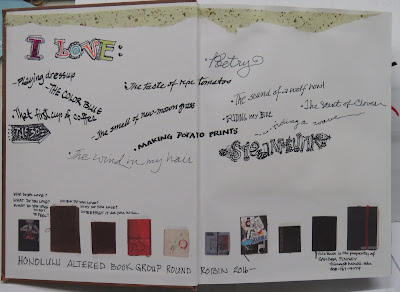 I LOVE:
Playing dressup
THE COLOR BLUE
That first cup of coffee
The taste of ripe tomatoes
The smell of new-mown grass
MAKING POTATO PRINTS
The wind in my hair
Poetry
The sound of a wolf howl
The Scent of Clover
RIDING MY BIKE
Riding a wave
STEAMPUNK
WHO DO YOU LOVE?
WHAT DO YOU LOVE?
WHAT DO YOU LOVE?
WHY DO YOU LOVE?
INTERPRET IT AS YOU WILL
HONOLULU ALTERED BOOK GROUP ROUND ROBIN 2016-
This Book is the property of